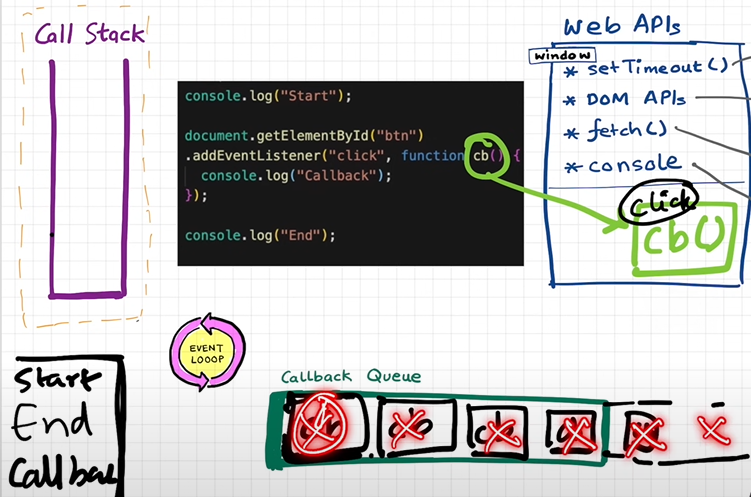 Call Stack
console.log("Start");
document.getElementById("btn")
.addEventListener("click", function cb() {
console.log("Callback");
});
console.log("End");
Web APIs
window
* setTimeout()
* DOM APIs
* fetch()
* console
click
cb()
EVENT
LOOOP
Start
End
Callbac
Callback Queue
cb